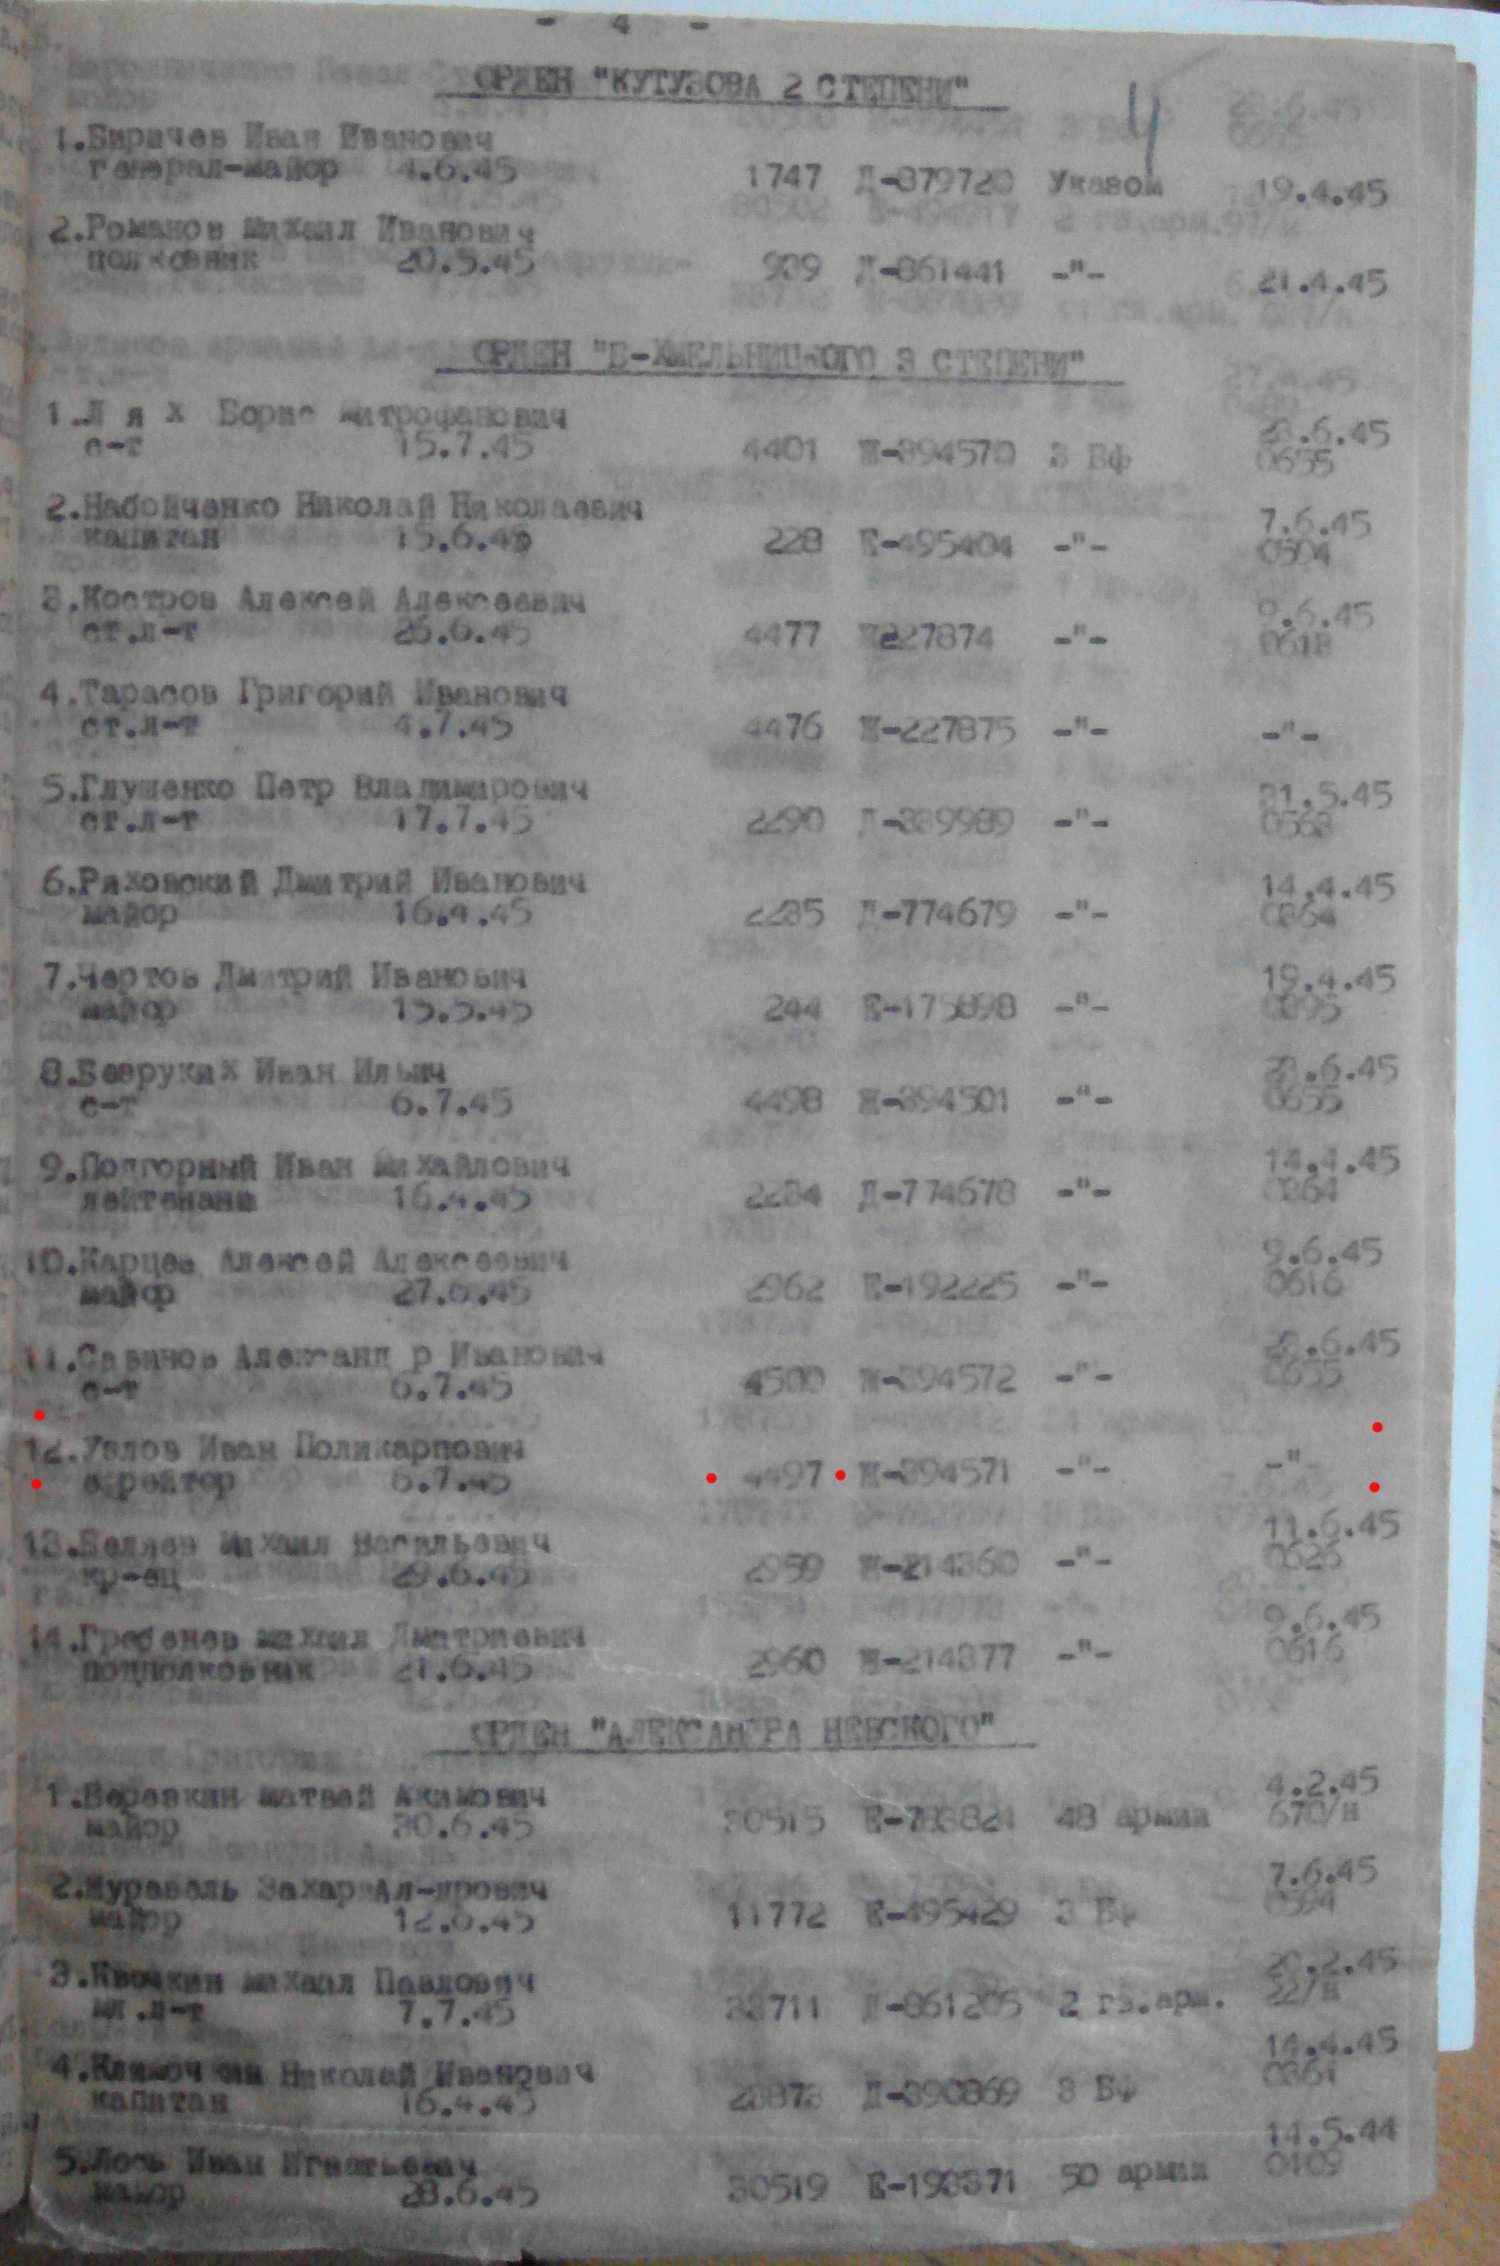 - 4 -
4
ОРДЕН "КУТУЗОВА 2 СТЕПЕНИ"
1.Биричев Иван Иванович
генерал-майор 4.6.45 1747 Д-879720 Указом 19.4.45
2.Романов Михаил Иванович
полковник 20.5.45 939 Д-861441 -"- 21.4.45
ОРДЕН "Б-ХМЕЛЬНИЦКОГО 3 СТЕПЕНИ"
1.Л я х Борис Митрофанович 23.6.45
с-т 15.7.45 4401 Ж-394570 3 Бф 0655
2.Набойченко Николай Николаевич 7.6.45
капитан 15.6.45 228 Е-495404 -"- 0594
3.Костров Алексей Алексеевич 9.6.45
ст.л-т 26.6.45 4477 227874 -"-
4.Тарасов Григорий Иванович
ст.л-т 4.7.45 4476 Ж-227875 -"- -"-
5.Глушенко Петр Владимирович 31.5.45
ст.л-т 17.7.45 2290 Д-339989 -"- 0563
6.Ряховский Дмитрий Иванович 14.4.45
майор 16.4.45 2285 Д-774679 -"- 0364
7.Чертов Дмитрий Иванович 19.4.45
майор 15.5.45 244 Е-175898 -"- 0395
8.Безруких Иван Ильич 23.6.45
с-т 6.7.45 4498 Ж-394501 -"- 0655
9.Подгорный Иван Михайлович 14.4.45
16.4.45 2284 Д-774678 -"- 0364
10.Карцев Алексей Алексеевич 9.6.45
майор 27.6.45 2962 Е-192225 -"- 0616
11.Савичов Александ р Иванович 23.6.45
с-т 6.7.45 4500 Ж-394572 -"- 0655
12.Узлов Иван Поликарпович
ефрейтор 6.7.45 4497 Ж-394571 -"- -"-
13.Беляев Михаил Васильевич 11.6.45
кр-ец 29.6.45 2959 Ж-214360 -"- 0626
14.Гребенев Михаил Дмитриевич 9.6.45
подполковник 21.6.45 2960 Ж-214377 -"- 0616
ОРДЕН "АЛЕКСАНДРА НЕВСКОГО"
1.Веревкин Матвей Акимович 4.2.45
майор 30.6.45 30515 Е-783821 48 армии 670/н
2.Журавель Захар Ал-дрович 7.6.45
майор 12.6.45 11772 Е-495429 3 Бф 0594
3.Квочкин Михаил Павлович 20.2.45
мл.л-т 7.7.45 33711 Д-861205 2 гв.арм. 22/н
4.Климочкин Николай Иванович 14.4.45
капитан 16.4.45 23873 Д-390869 3 Бф 0361
5.Лось Иван Игнатьевич 14.5.44
майор 28.6.45 30519 Е-193371 50 армии 0109